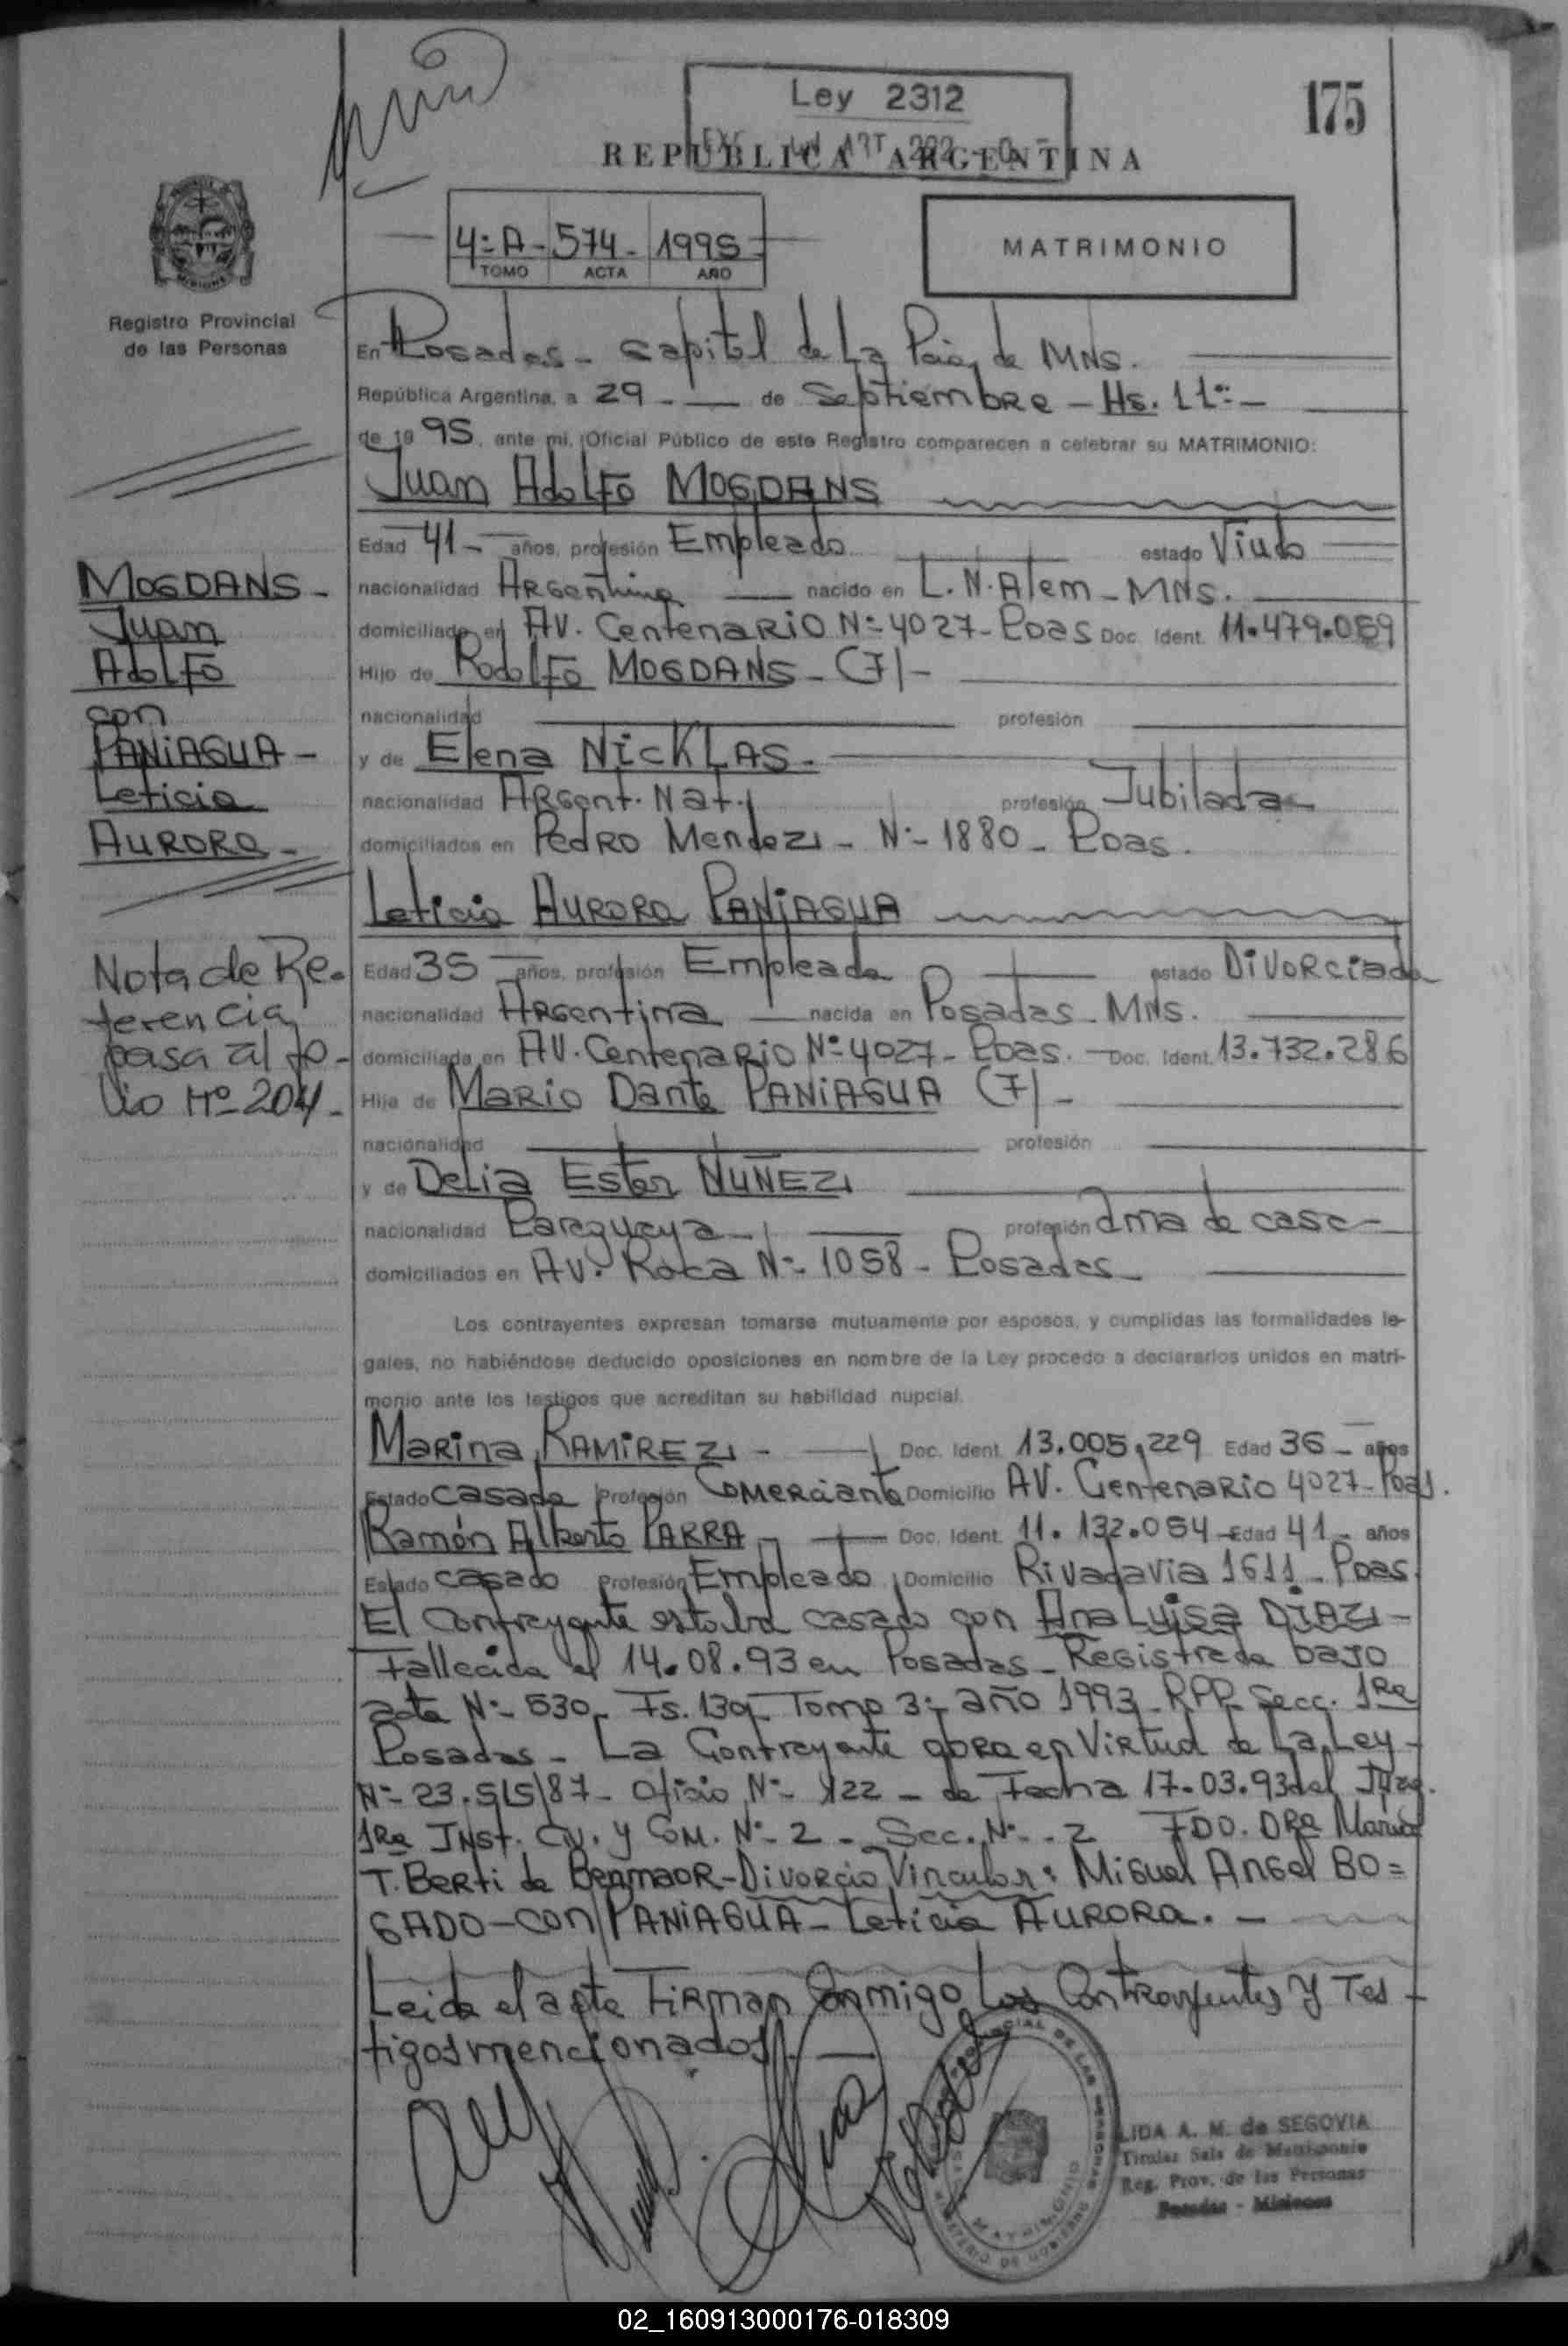 Ley 2312
175
REPUBLICA ARGENTINA
4:A - 574 - 1995
TOMO ACTA AÑO
MATRIMONIO
Registro Provincial
de las Personas
En Posadas - Capital de La Pcia, de MNS.
República Argentina, a 29 - de Septiembre - Hs. 11:-
de 1995, ante mi, Oficial Público de este Registro comparecen a celebrar su MATRIMONIO:
Juan Adolfo MOGDANS
Edad 41 - años, profesión Empleado estado Viudo
nacionalidad Argentina nacido en L.N. Alem - MNS.
domiciliado en AV. Centenario Nº 4027 - Pdas Doc. Ident. 11.479.089
Hijo de Rodolfo MOGDANS - (7) -
nacionalidad profesión
y de Elena NICKLAS -
nacionalidad Argent. Nat. profesión Jubilada
domiciliados en Pedro Mendez - Nº 1880 - Pdas.
Leticia Aurora PANIAGUA
Edad 35 años, profesión Empleada estado Divorciada
nacionalidad Argentina nacida en Posadas - MNS.
domiciliada en AV. Centenario Nº 4027 - Pdas. - Doc. Ident. 13.732.286
Hija de Mario Dante PANIAGUA (7) -
nacionalidad profesión
y de Delia Ester NUÑEZ
nacionalidad Paraguaya - profesión Ama de casa -
domiciliados en AV. Roca Nº 1058 - Posadas
MOGDANS -
Juan
Adolfo
con
PANIAGUA -
Leticia
AURORA -
Nota de Re-
ferencia
pasa al fo-
lio Nº 204 -
Los contrayentes expresan tomarse mutuamente por esposos, y cumplidas las formalidades le-
gales, no habiéndose deducido oposiciones en nombre de la Ley procedo a declararlos unidos en matri-
monio ante los testigos que acreditan su habilidad nupcial.
Marina RAMIREZ - Doc. Ident. 13.005.229 Edad 36 - años
Estado casada Profesión Comerciante Domicilio AV. Centenario 4027 - Pdas.
Ramón Alberto PARRA Doc. Ident. 11.132.054 - Edad 41 - años
Estado casado Profesión Empleado Domicilio Rivadavia 1611 - Pdas.
El contrayente estaba casado con Ana Luisa DIAZ -
Fallecida el 14.08.93 en Posadas - Registrada bajo
acta Nº 530 - Fs. 130 - Tomo 3: año 1993 - RPP - Secc. 1Ra
Posadas - La Contrayente obra en Virtud de La Ley -
Nº 23.515/87 - Oficio Nº 122 - de Fecha 17.03.93 del Juzg.
1Ra Inst. Civ. y Com. Nº 2 - Sec. Nº 2 FDO. DRa Maria
T. Berti de Benmaor - Divorcio Vincular: Miguel Angel BO=
GADO - con PANIAGUA - Leticia AURORA. -
Leida el acta Firman Conmigo Los Contrayentes y Tes-
tigos mencionados. -
LIDA A. M. de SEGOVIA
Titular Sala de Matrimonio
Reg. Prov. de las Personas
Posadas - Misiones
02_160913000176-018309